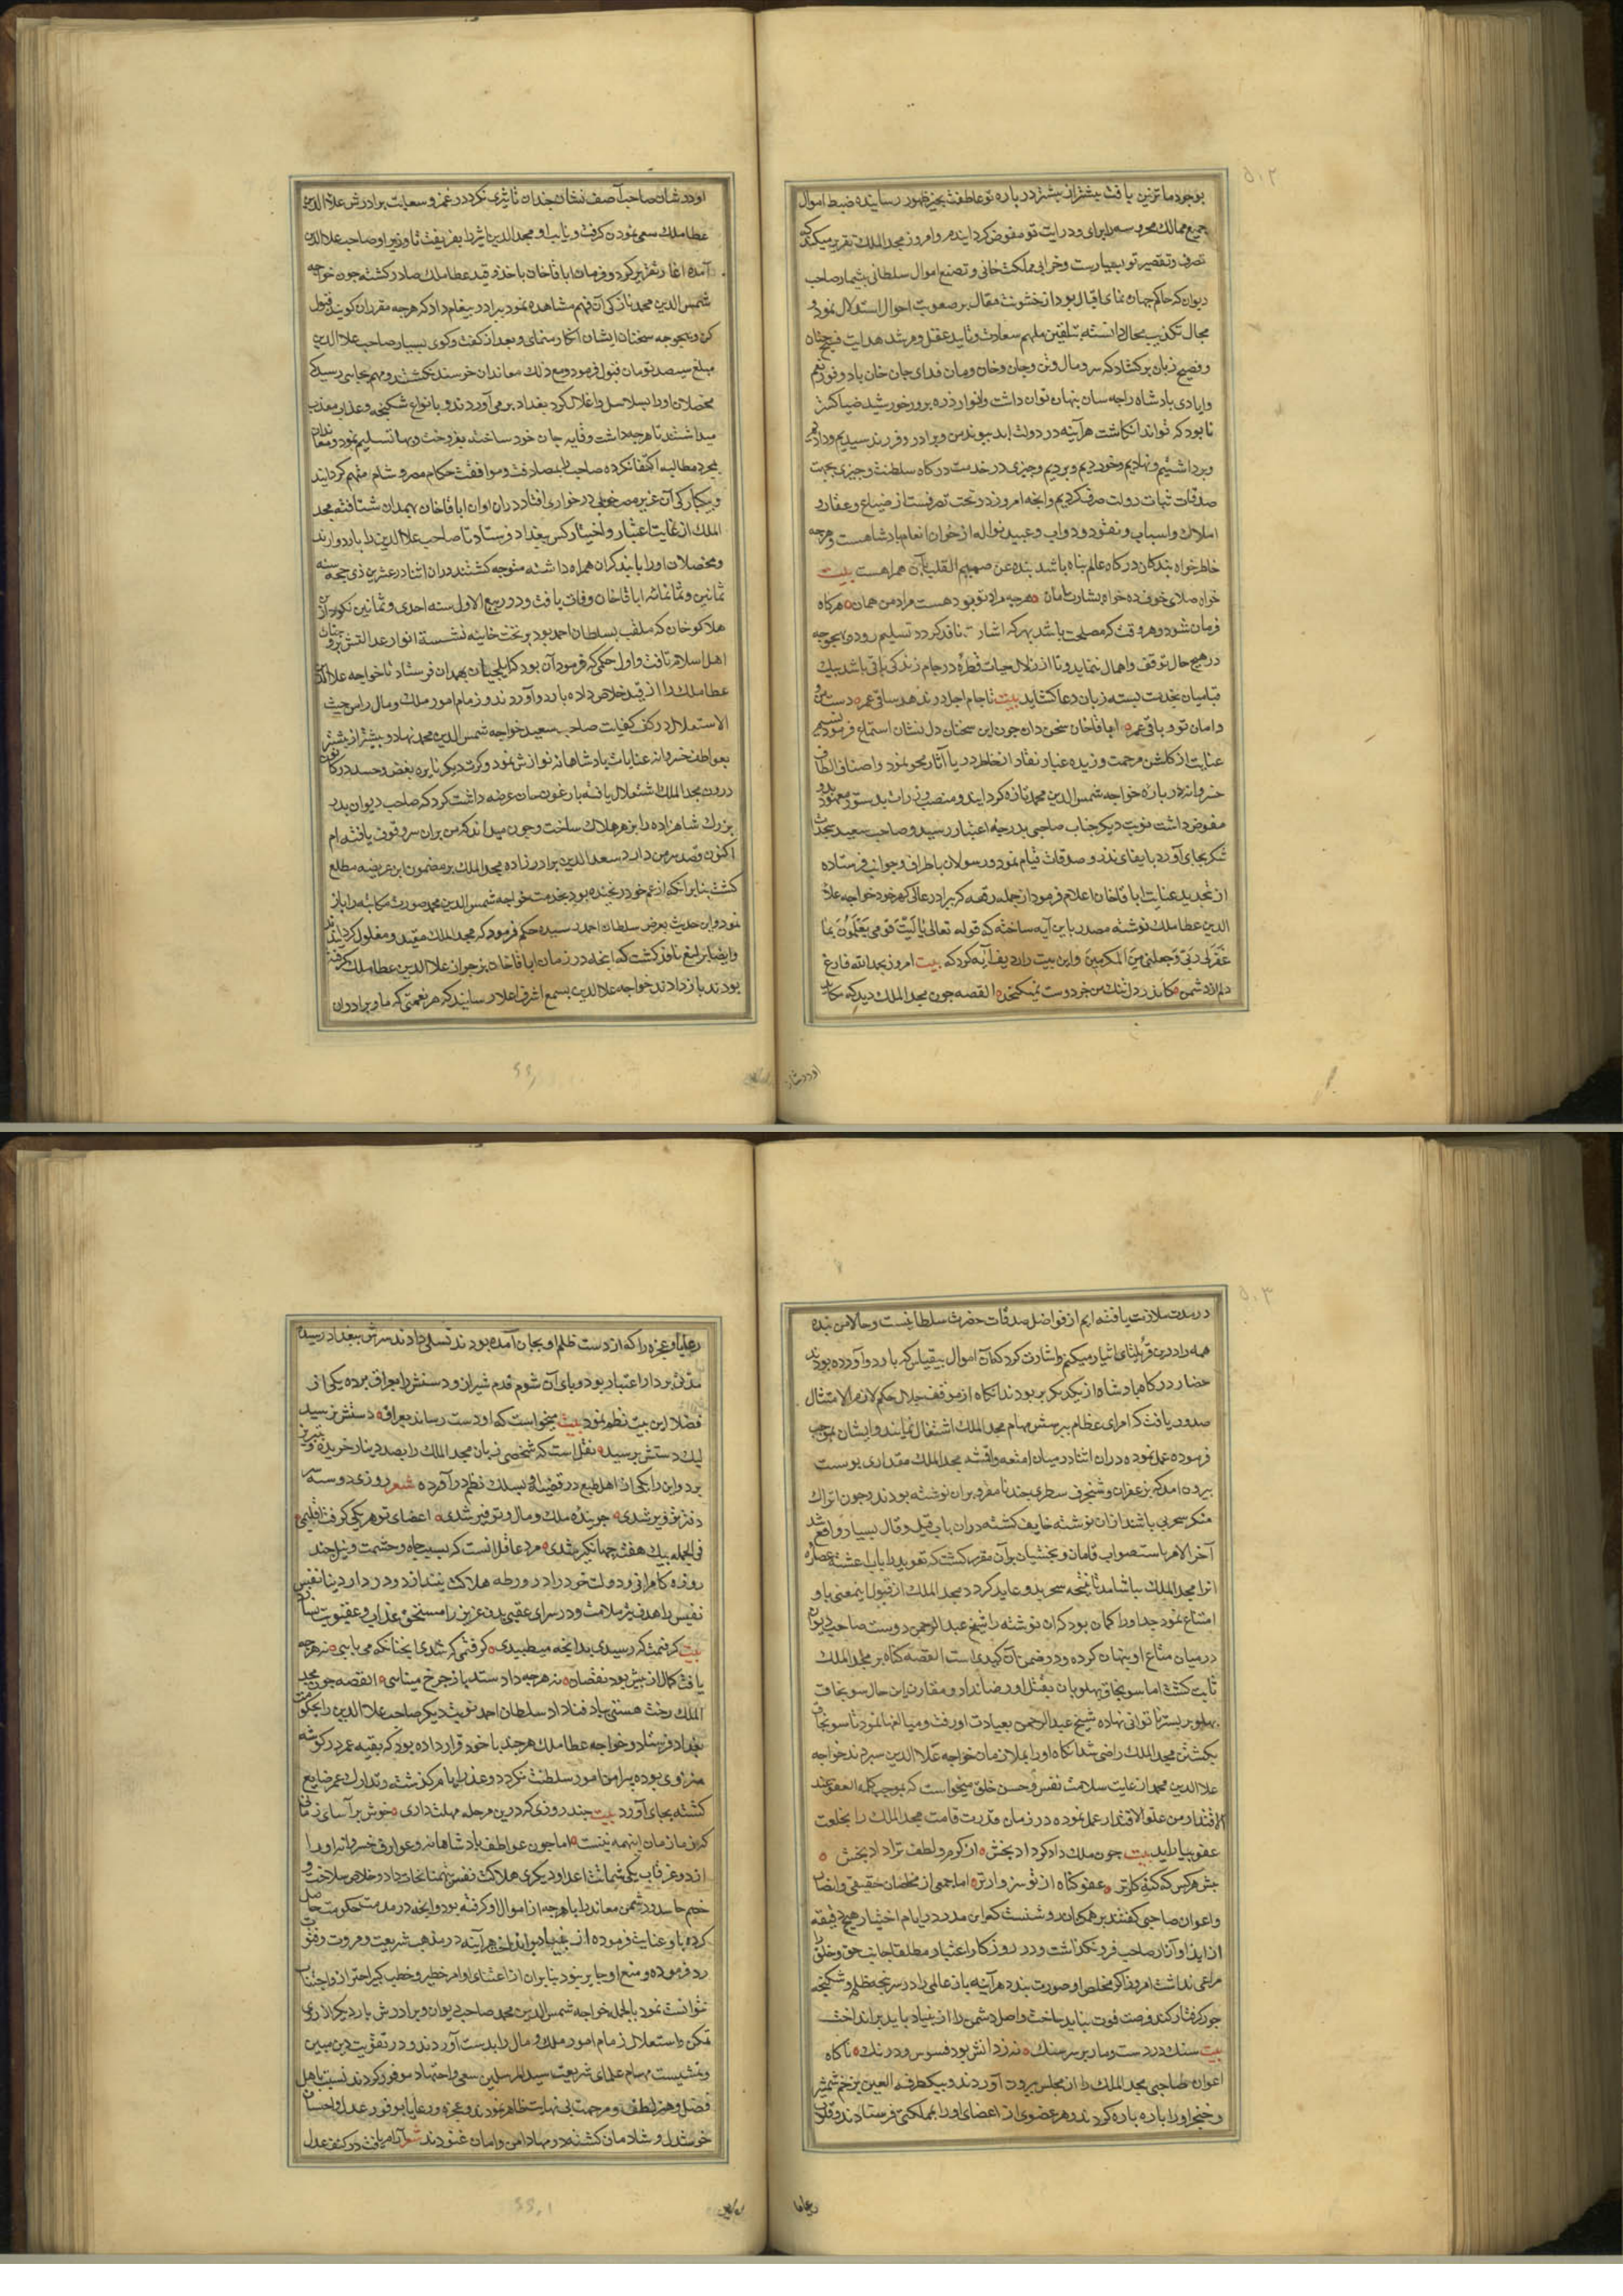 بوجود ما تزیین یافت بیشتر از پیشتر در باره تو عاطفت بحیز ظهور رسانیده ضبط اموال
جمیع ممالک محروسه را برای و درایت تو مفوض گردانیدم و امروز مجد الملک تقریر میکند که
تصرف و تقصیر تو بسیارست و خرابی مملکت خانی و تضیع اموال سلطانی بیشمار صاحب
دیوان که حاکم جهان نمای اقبال بود از خشونت مقال بر صعوبت احوال استدلال نمود و
مجال تکذیب محال دانسته بتلقین ملهم سعادت و تایید عقل و مرشد هدایت
و فصیح زبان برکشاد که سر و مال و تن و جان و خان و مان فدای جان خان باد و فور نعم
و ایادی پادشاه را چه سان پنهان توان داشت و انوار ذره پرور خورشید ضیا گستر
نابود که تواند انگاشت هر آینه در دولت ابد پیوند من و برادر و فرزند ستدیم و دادیم
و برداشتیم و نهادیم و خوردیم و بردیم و چیزی در خدمت درکاه سلطنت و چیزی بجهت
صدقات ثبات دولت صرف کردیم و انچه امروز در تحت تصرفست از ضیاع و عقار و
املاک و اسباب و نقود و دواب و عبید نواله از خوان انعام پادشاهست و هرچه
خاطر خواه بندکان درکاه عالم پناه باشد بنده عن صمیم القلب بآن همراهست بیت
خواه صلای خوف ده خواه بشارت امان هرچه مراد تو بود هست مراد من همان هرکاه
فرمان شود و هر وقت که مصلحت باشد بهر که اشارت نافذ کردد تسلیم رود و بهیچ وجه
در هیچ حال توقف و اهمال ننماید و تا از زلال حیات قطره در جام زندکی باقی باشد بیک
قبا میان بخدمت بسته زبان دعا کشاید بیت تا جام اجل در ندهد ساقی عمر دست من و
دامان تو و باقی عمر اباقاخان سخن دان چون این سخنان دل نشان استماع فرمود نسیم
عنایت از کلشن مرحمت وزیده غبار نقار از خاطر دریا آثار محو نمود و اصناف الطاف
خسروانه در باره خواجه شمس الدین محمد تازه کردانید و منصب وزارت بدستور معهود بدو
مفوض داشت نوبت دیکر جناب صاحبی بدرجه اعتبار رسید و صاحب سعید سجدات
شکر بجای آورد بایفای نذر و صدقات قیام نمود و رسولان باطراف و جوانب فرستاده
از تجدید عنایت اباقاخان اعلام فرمود از جمله رقعه که برادر عالی کهر خود خواجه علا
الدین عطاملک نوشته مصدر باین آیه ساخته که قوله تعالی یا لیت قومی یعلمون بما
غفر لی ربی و جعلنی من المکرمین و این بیت را ردیف آیه کرد که بیت امروز بحمد الله فارغ
دلم از دشمن کاندر دل تنک من جز دوست نمیکنجد القصه چون مجد الملک دید که مکاید
او در شان صاحب آصف نشان چندان تاثیری نکرد در غمز و سعایت برادرش علا الدین
عطاملک سعی نمودن کرفت و نایب او مجد الدین اثیر را بفریفت تا
آمده آغاز تقریر کرد و فرمان اباقاخان باخذ و قید عطاملک صادر کشته چون خواجه
شمس الدین محمد نازکی آن مهم مشاهده نمود ببرادر پیغام داد که هرچه مقرران کویند قبول
کن و بهیچ وجه سخنان ایشان انکار منمای و بعد از کفت و کوی بسیار صاحب علا الدین
مبلغ سیصد تومان قبول فرمود و مع ذلک معاندان خرسند نکشتند و مهم بجایی رسید که
محصلان او را بسلاسل و اغلال کرد بغداد بر می آوردند و بانواع شکنجه و عذاب معذب
میداشتند تا هرچه داشت وقایه جان خود ساخته بفروخت و بها تسلیم نمود و معاندان
بمجرد مطالبه اکتفا نکرده صاحب را بمصادقت و موافقت حکام مصر و شام متهم کردانیدند
و بیکبارکی آن عزیز مصر خوبی در خواری افتاد در آن اوان اباقاخان بهمدان شتافته مجد
الملک از غایت اعتبار و اختیار کس ببغداد فرستاد تا صاحب علا الدین را باردو آرند
و محصلان او را با بند کران همراه داشته متوجه کشتند در آن اثنا در عشرین ذی حجه سنه
ثمانین و ثمانمائه اباقاخان وفات یافت و در ربیع الاول سنه احدی و ثمانین نکودار بن
هلاکو خان که ملقب بسلطان احمد بود بر تخت خانیه نشسته انوار عدالتش
اهل اسلام تافت و اول حکمی که فرمود آن بود که ایلچیان بهمدان فرستاد تا خواجه علا الدین
عطاملک را از قید خلاص داده باردو آوردند و زمام امور ملک و مال را من حیث
الاستقلال در کف کفایت صاحب سعید خواجه شمس الدین محمد نهاد و بیشتر از پیشتر
بعواطف خسروانه و عنایات پادشاهانه نوازش نمود و کرت دیکر نایره بغض و حسد در کانون
درون مجد الملک اشتعال یافته بارغون خان عرضه داشت کرد که صاحب دیوان پدر
بزرک شاهزاده را بزهر هلاک ساخت و چون میداند که من بر آن سر وقوف یافته ام
اکنون قصد سر من دارد سعد الدین برادر زاده مجد الملک بر مضمون این عریضه مطلع
کشت بنا بر آنکه از عم خود رنجیده بود بخدمت خواجه شمس الدین محمد صورت مکاتبه را باز
نمود و این حدیث بعرض سلطان احمد رسیده حکم فرمود که مجد الملک مقید و مغلول کردانند
و ایضا یرلیغ نافذ کشت که انچه در زمان اباقاخان از جوانب علا الدین عطاملک کرفته
بودند باز دادند خواجه علا الدین بسمع اشرف اعلا رسانید که هر نعمتی که ما و برادران
او در شان
در مدت ملازمت یافته ایم از فواضل صدقات حضرت سلطانیست و حالا من بنده
همه را درین قریلتای ایثار میکنم و اشارت کرد که آن اموال بیقیاس که باردو آورده بودند
حضار درکاه پادشاه از یکدیکر بربودند آنکاه از موقف جلال حکم لازم الامتثال
صدور یافت که امرای عظام بپرسش مهام مجد الملک اشتغال نمایند و ایشان بموجب
فرموده عمل نموده در آن اثنا در میان امتعه و اقمشه مجد الملک مقداری پوست
بیرون آمد که بزعفران و شنجرف سطری چند نامقرو بر آن نوشته بودند و چون اتراک
منکر سحر می باشند از آن نوشته خایف کشته در آن باب قیل و قال بسیار واقع شد
آخر الامر باستصواب قامان و بخشیان بر آن مقرر کشت که تعویذ را بآب اغشته عصاره
انرا مجد الملک بیاشامد تا نتیجه سحر بدو عاید کردد مجد الملک از قبول اینمعنی ابا و
امتناع نمود چه او را کمان بود که آن نوشته را شیخ عبد الرحمن دوست صاحب دیوان
در میان متاع او پنهان کرده و در ضمن آن کیدی است القصه کناه بر مجد الملک
ثابت کشت اما سونجاق بهلوبان بقتل او رضا نداد و مقارن این حال سونجاق
پهلو بر بستر ناتوانی نهاده شیخ عبد الرحمن بعیادت او رفت و مبالغها نمود تا سونجاق
بکشتن مجد الملک راضی شد آنکاه او را بملازمان خواجه علا الدین سپردند خواجه
علا الدین محمد از غایت سلامت نفس و حسن خلق میخواست که بموجب کلمه العفو عند
الاقتدار من علو الاقتدار عمل نموده در زمان قدرت قامت مجد الملک را بخلعت
عفو بیاراید بیت چون ملک داد کرد داد ببخش از کرم و لطف تراد داد ببخش
جرم هرکس که کنه کارتر عفو کناه از تو سزاوارتر اما جمعی از مخلصان حقیقی و انصار
و اعوان صاحبی کفتند بر همکنان روشنست که این مدبر در ایام اختیار هیچ دقیقه
از ایذا و آزار صاحب فرو نکذاشت و در روزکار اعتبار مطلقا جانب حق و خلق را
مراعی نداشت امروز اکر مخلص او صورت بندد هر آینه باز عالمی را در سرپنجه ظلم و شکنجه
جور کرفتار کند فرصت فوت نباید ساخت و اصل دشمن را از بنیاد باید بر انداخت
بیت سنک در دست و مار بر سر سنک نه ز دانش بود فسوس و درنک ناکاه
اعوان صاحبی مجد الملک را از مجلس بیرون آوردند و بیک طرفة العین بزخم شمشیر
و خنجر او را پاره پاره کردند و هر عضوی از اعضای او را بمملکتی فرستادند و قلوب
رعایا و عجزه را که از دست ظلم او بجان آمده بودند تسلی دادند سرش ببغداد رسیده
مدتی بر دار اعتبار بود و پای آن شوم قدم شیراز و دستش را بعراق برده یکی از
فضلا این بیت نظم نمود بیت میخواست که او دست رساند بعراق دستش نرسید
لیک دستش برسید نقل است که شخصی زبان مجد الملک را بصد دینار خریده و بتبریز
برد و این را یکی از اهل طبع در قضیه او بسلک نظم در آورده شعر روزی دو سه
دفتر تزویر شدی جوینده ملک و مال و توفیر شدی اعضای تو هر یکی کرفت اقلیمی
فی الجمله بیک هفته جهانکیر شدی مرد عاقل آنست که بسبب جاه و حشمت و نیل چند
روزه کامرانی و دولت خود را در ورطه هلاکت نیندازد و در دار دنیا نفس
نفیس را هدف تیر ملامت و در سرای عقبی بدن عزیز را مستحق عذاب و عقوبت نسازد
بیت کرفتمت که رسیدی بدانچه میطلبیدی کرفتمت که شدی آنچنانکه می بایی نه هرچه
یافت کمال از پیش بود نقصان نه هرچه داد ستد باز چرخ مینایی القصه چون مجد
الملک رخت هستی بباد فنا داد سلطان احمد نوبت دیکر صاحب علا الدین را بحکومت
بغداد فرستاد و خواجه عطاملک هرچند با خود قرار داده بود که بقیه عمر در کوشه
منزوی بوده پیرامن امور سلطنت نکردد و عذر ایام کذشته و تدارک عمر ضایع
کشته بجای آورد بیت چند روزی که درین مرحله مهلت داری خوش بر آسای زمانی
که زمان اینهمه نیست اما چون عواطف پادشاهانه و عوارف خسروانه او را
از دو غرقاب یکی شماتت اعدا و دیکری هلاکت نفس بیهمتا نجات داد و خلاص ساخت و
خصم حاسد و دشمن معاند را با هرچه از اموال او کرفته بود و انچه در مدت حکومت حاصل
کرده باو عنایت فرموده هر آینه در مذهب شریعت و مروت وفق
رد فرموده و منع او جایز نبود بنابران از اعتنای اوامر خطیر و خطب کبیر احتراز و اجتناب
نتوانست نمود بالجمله خواجه شمس الدین محمد صاحب دیوان و برادرش بار دیکر از روی
تمکن و استقلال زمام امور ملک و مال را بدست آوردند و در تقویت دین مبین
و تمشیت مهام علمای شریعت سید المرسلین سعی و اجتهاد موفور کردند نسبت باهل
فضل و هنر لطف و مرحمت بی نهایت ظاهر نمودند و عجزه و رعایا بوفور عدل و احسان
خوشدل و شادمان کشته در مهاد امن و امان غنودند شعر آرام یافت در کنف عدل
رعایا